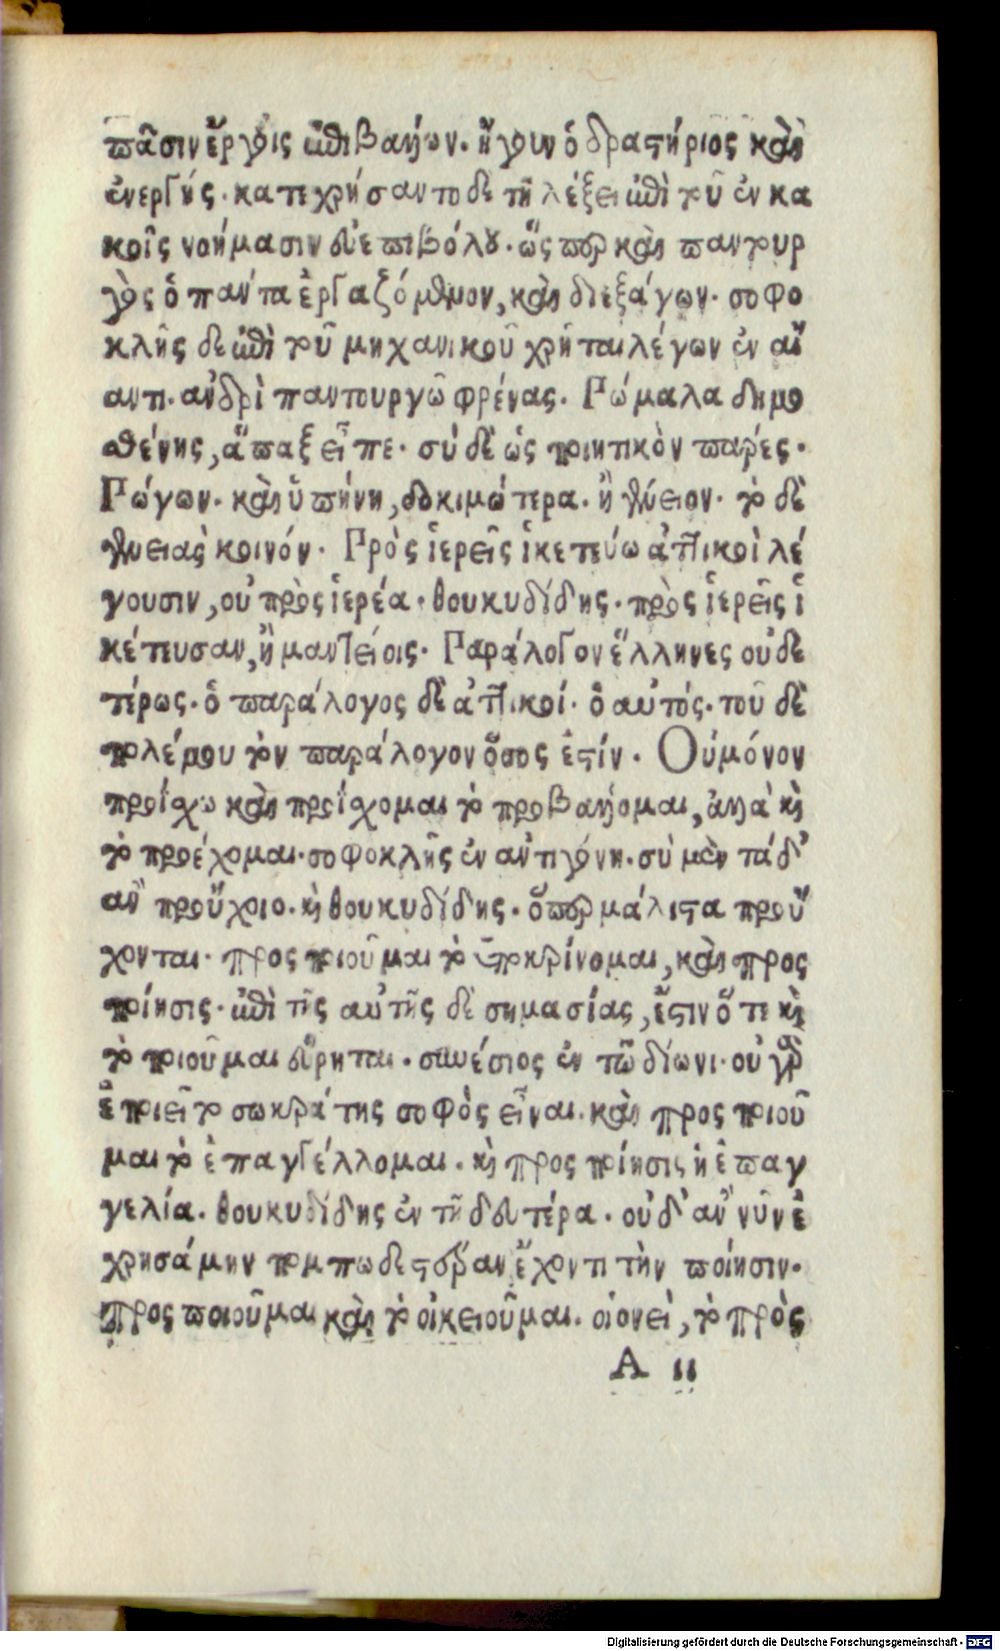 πᾶσιν ἔργοις ἐπιβάλλων. ἤγουν ὁ δραστήριος καὶ
ἐνεργής. κατεχρήσαντο δὲ τῇ λέξει ἐπὶ τοῦ ἐν κα
κοῖς νοήμασιν εὐεπιβόλου. ὥσπερ καὶ πανουρ
γος ὁ πάντα ἐργαζόμενον, καὶ διεξάγων. σοφο
κλῆς δε ἐπὶ τοῦ μηχανικοῦ χρῆται λέγων ἐν αἴ
αντι. ἀνδρὶ παντουργῶ φρένας. Πώμαλα δημο
σθένης, ἅπαξ εἶπε. σύ δὲ ὡς ποιητικὸν πάρες.
Πώγων. καὶ ὑπήνη, δοκιμώτερα. ἢ γένειον. τὸ δὲ
γενειὰς κοινόν. Πρὸς ἱερεῖς ἱκετεύω ἀττικοὶ λέ
γουσιν, οὐ πρὸς ἱερέα. θουκυδίδης. πρὸς ἱερεῖς ἱ
κέτευσαν, ἢ μαντείοις. Παράλογον ἕλληνες οὐδε
τέρως. ὁ παράλογος δὲ ἀττικοί. ὁ αὐτός. τοῦ δὲ
πολέμου τὸν παράλογον ὅσος ἐστίν. Οὐμόνον
προΐσχω καὶ προΐσχομαι τὸ προβάλλομαι, ἀλλὰ καὶ
τὸ προέχομαι. σοφοκλῆς ἐν ἀντιγόνη. σὺ μὲν τάδ'
ἂν προὔχοιο. καὶ θουκυδίδης. ὅπερ μάλιστα προὔ
χονται. προς ποιοῦμαι τὸ ὑποκρίνομαι, καὶ προς
ποίησις. ἐπὶ τῆς αὐτῆς δὲ σημασίας, ἔστιν ὅτι καὶ
τὸ ποιοῦμαι εὕρηται. συνέσιος ἐν τῶ δίωνι. οὐ γὰρ
ἐποιεῖτο σωκράτης σοφὸς εἶναι. καὶ προς ποιοῦ
μαι τὸ ἐπαγγέλλομαι. καὶ προς ποίησις ἡ ἐπαγ
γελία. θουκυδίδης ἐν τῇ δευτέρα. οὐδ' ἂν νῦν ἐ
χρησάμην κομπωδεστέραν ἔχοντι τὴν ποίησιν.
προς ποιοῦμαι καὶ τὸ οἰκειοῦμαι. οἱονεὶ, τὸ πρὸς
A ii
Digitalisierung gefördert durch die Deutsche Forschungsgemeinschaft - DFG